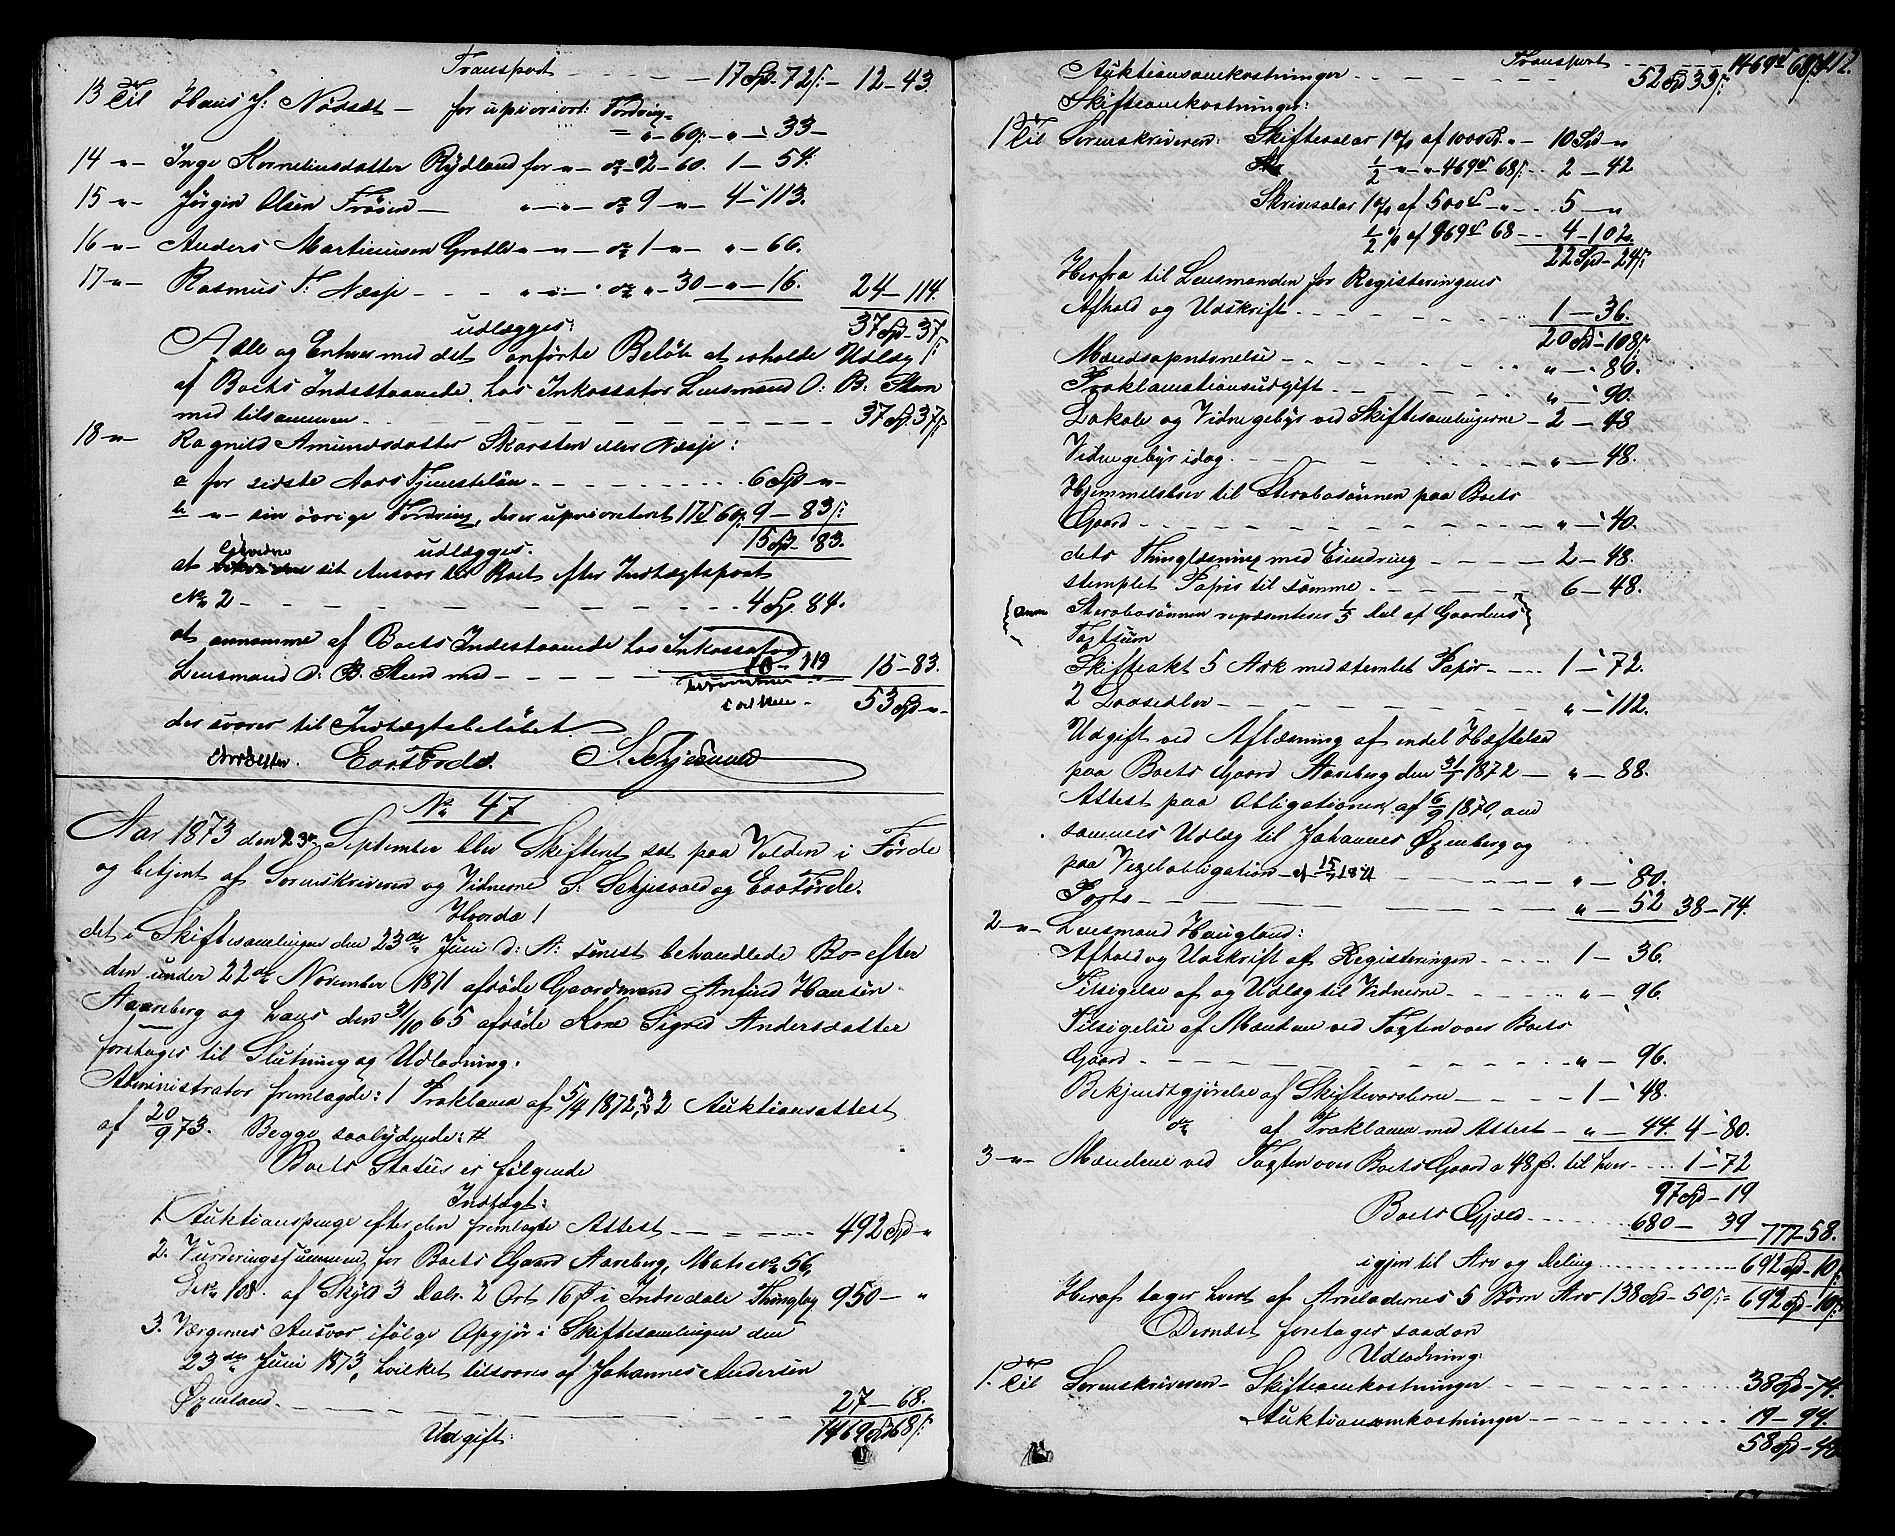 Transport - - - - - 17 Spd. 72 ß: - 12-43.
13 Til Hans J: Nödset - for uprivivort: Fordring
" - 60. - " - 33 -
14 - " - Inge Korneliusdatter Rydland for - " - do 2 - 60. 1 - 54.
15 - " - Jörgen Olsen Fröien - " - " - do 9 - " - 4 - 113.
16 - " - Anders Martinusen Grotle - " - " - do 1 - " - " - 66.
17 - " - Rasmus T: Næsje - - - " - " - do " - 30 - " - 16. 24 - 114.
udlægges: 37 Spd - 37 ß:
Alle og Enhver med det anförte Belöb at erholde Udlæg
af Boets Indestaaende hos Inkassator Lensmand O: B:
med tilsammen - - - - - 37 Sp. 37 ß:
18 - " - Ragnild Amundsdatter Skorsten eller Næsje:
a for sidste Aars Tjenestelön - - - - 6 Spd - " -
b - " - sin övrige Fordring, deres uprivriteret 17 60 ß 9 - 83 ß:
udlægges. 15 Spd - 83.
at sit Ansvar til Boet efter Indtægtspost
No 2 - - - - - 4 Sp. 84.
at annamme af Boets Indestaaende hos Inkassator
10 - 119
Lensmand O: B: med - - - - - 15 - 83.
53 Spd - " -
der svarer til Indtægtsbeløbet
No 47
Aar 1873 den 23de September blev Skifteret sat paa Volden i Förde
og betjent af Sorenskriveren og Vidnerne S. Schjesvold og Evsförde.
Hvorda!
det i Skiftesamlingen den 23de Juni d: A: senest behandlede Bo efter
den under 22de November 1871 afdöde Gaardmand Anfind Hansen
Aareberg og hans den 31/10 65 afdöde Kone Sigrid Andersdatter
foretages til Slutning og Udlodning.
Administrator fremlagde: 1 Proklama af 5/4 1872, 2 Auktionsattest
af 20/9 73. Begge saalydende: #
Boets Status er fölgende
Indtægt:
1. Auktionspenge efter den fremlagte Attest - - - - - 492 Spd - "
2. Vurderingssummen for Boets Gaard Aareberg, Matr. No 56,
L No 108. af Skyld 3 Dalr. 2 Ort 16 ß i Indredale Thinglag 950 - "
3. Værgernes Ansvar ifölge Opgjör i Skiftesamlingen den
23de Juni 1873, hvilket tilsvares af Johannes Andersen
Öxenland - - - - - 27 - 68.
Udgift: 1469 Spd 68 ß:
Transport - - - - - 1469 Spd 68 ß
Auktionsomkostninger - - - - - 52 Spd 33 ß:
Skifteomkostninger:
1 Til Sorenskriveren: Skiftesalar 1 % af 1000 Sp. " - 10 Spd - "
1/2 " - " 469 68 ß: - 2 - 42
Skrivesalar 1 % af 500 - " - 5 - "
1/2 % af 969 68 - - 4 - 102.
22 Spd - 24 ß:
Herfra til Lensmanden for Registeringens
Afhold og Udskrift - - - - - 1 - 36.
20 Spd - 108 ß:
Mændsopnævnelse - - - - - " - 80.
Proklamationsudgift - - - - - " - 90.
Lokale og Vidnegebyr ved Skiftesamlingerne - 2 - 48
Vidnegebyr idag - - - - - " - 48.
Hjemmelsbrev til Sterbosönnen paa Boets
Gaard - - - - - " - 40.
dets Thinglæsning med Erindring - - - - 2 - 48.
stemplet Papir til samme - - - - 6 - 48.
(anm Sterbosönnen repræsenterer 1/5 Del af Gaardens
Taxtsum
Skifteakt 5 Ark med stemlet Papir - - - 1 - 72.
2 Lodsedler - - - - - " - 112.
Udgift ved Aflæsning af endel Hæftelser
paa Boets Gaard Aareberg den 31/7 1872 - " - 88.
Attest paa Obligationen af 6/9 1870, om
sammes Udlæg til Johannes Öxenberg og
paa Vexelobligation af
" - 80.
Porto - - - - - " - 52 38 - 74.
2 - " - Lensmand Haugland:
Afhold og Udskrift af Registeringen - - - - 1 - 36.
Tilsigelse af og Udlæg til Vidnerne - - - - " - 96.
Tilsigelse af Mændene ved Taxten over Boets
Gaard - - - - - " - 96.
Bekjendtgjörelse af Skiftevarslerne - - - - 1 - 48.
do af Proklama med Attest - " - 44. 4 - 80.
3 - " - Mændene ved Taxten over Boets Gaard a 48 ß. til hver - - - 1 - 72
97 Spd - 19
Boets Gjæld - - - - - 680 - 39 777 - 58.
igjen til Arv og Deling - - - - - 692 Spd - 10 ß:
Heraf tager hvert af Arveladernes 5 Börn Arv 138 Spd - 50 ß: = 692 Spd - 10 ß:
Dernæst foretages saadan
Udlodning:
1. Til Sorenskriveren - Skifteomkostninger - - - - - 38 Spd - 74.
Auktionsomkostninger - - - - - 19 - 94.
58 Spd - 48